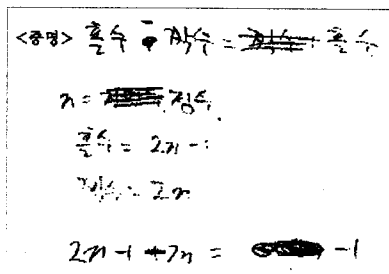 <증명> 홀수 - 짝수 = 홀수
n = 정수
홀수 = 2n - 1
짝수 = 2n
2n - 1 - 2n = -1